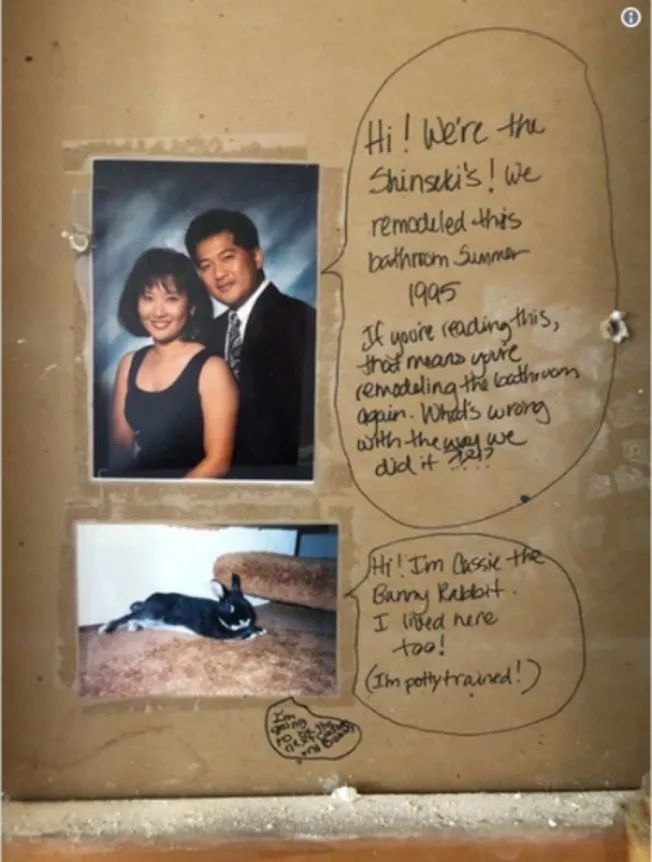 Hi! We're the
Shinseki's! We
remodeled this
bathroom Summer
1995
If you're reading this,
that means you're
remodeling the bathroom
again. What's wrong
with the way we
did it ?!?!?
Hi! I'm Cassie the
Bunny Rabbit.
I lived here
too!
(I'm potty trained!)
I'm
going
to be the
next